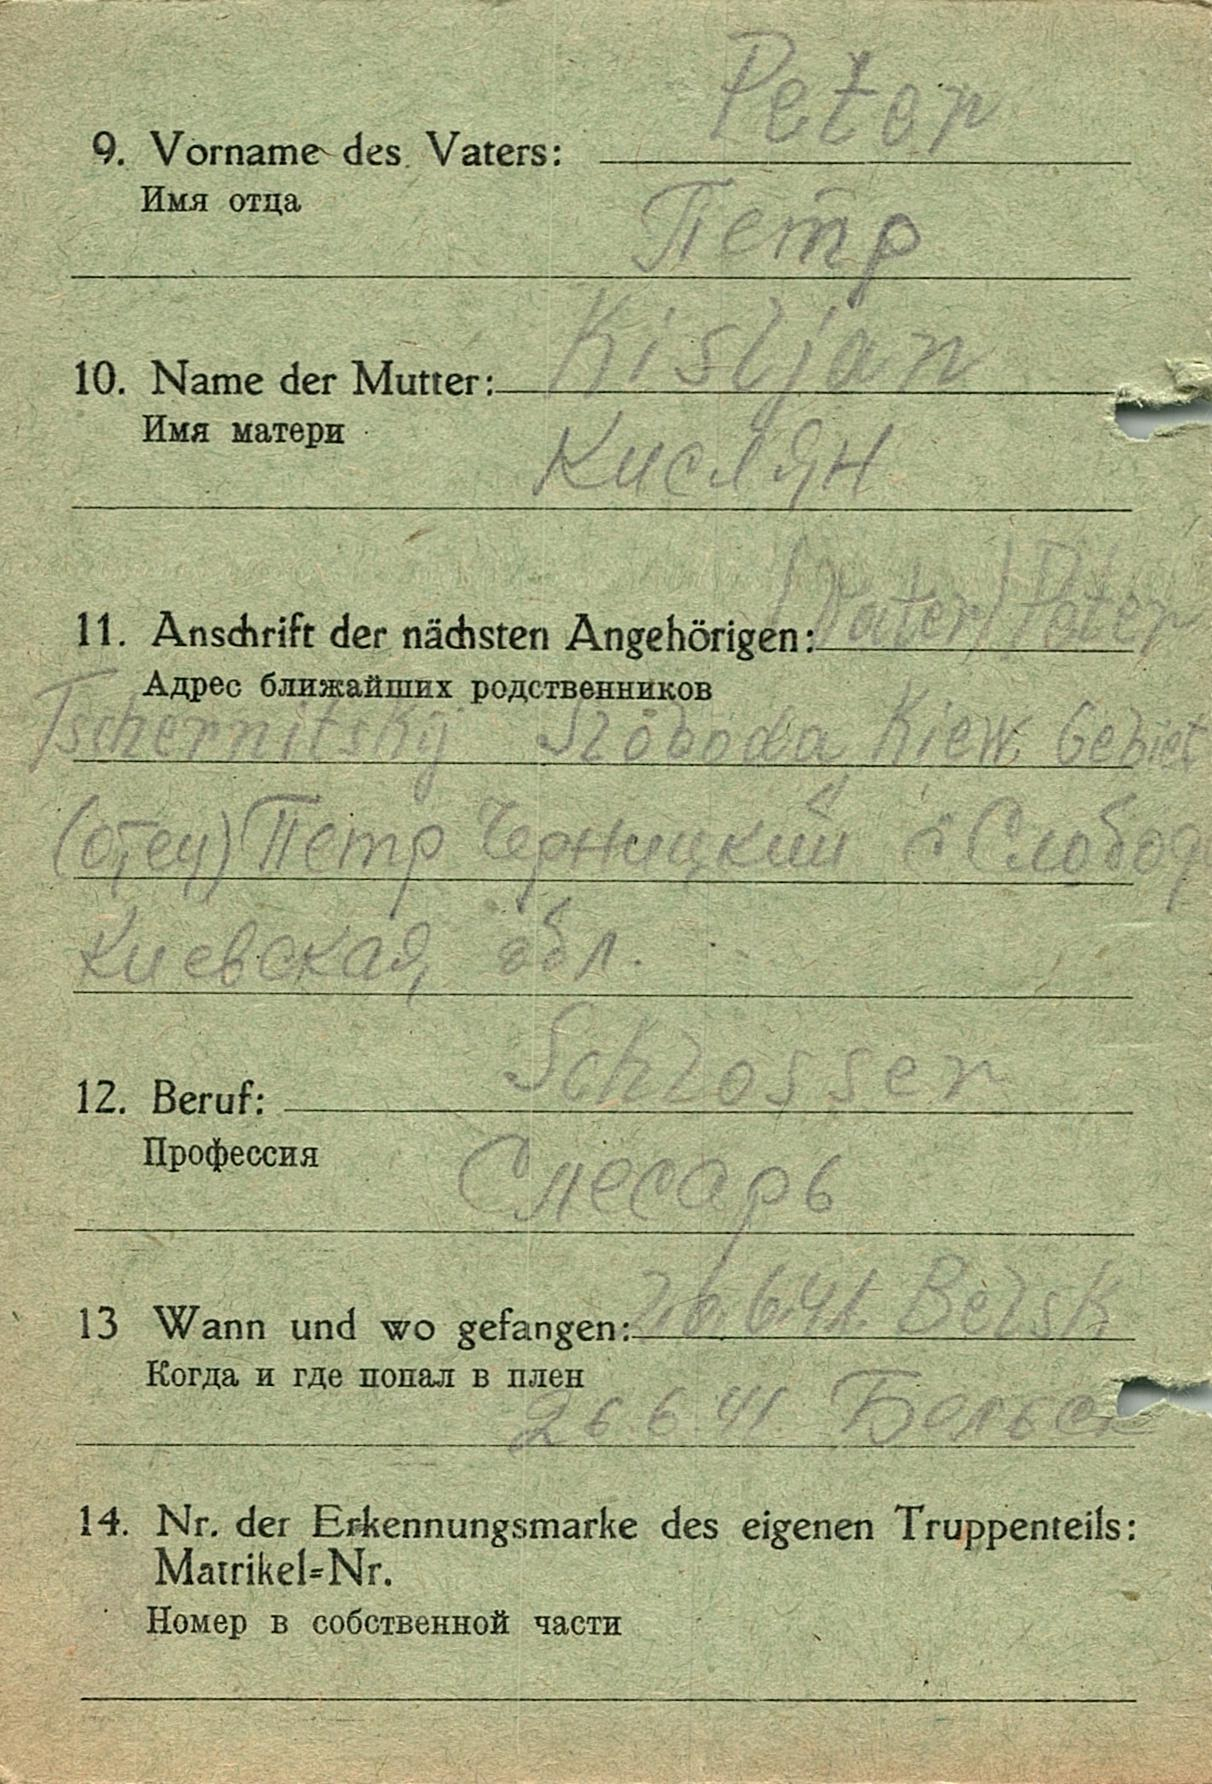 Peter
9. Vorname des Vaters:
Имя отца
Петр
Kisljan
10. Name der Mutter:
Имя матери
Кислян
(Vater) Peter
11. Anschrift der nächsten Angehörigen:
Адрес ближайших родственников
Tschernitskÿ Sloboda Kiew. Gebiet
(отец) Петр Черницкий с Слобод
Киевская, обл.
Schlosser
12. Beruf:
Профессия
Слесарь
13 Wann und wo gefangen: 26.6.41. Belsk
Когда и где попал в плен
26.6.41. Бельск
14. Nr. der Erkennungsmarke des eigenen Truppenteils:
Matrikel=Nr.
Номер в собственной части